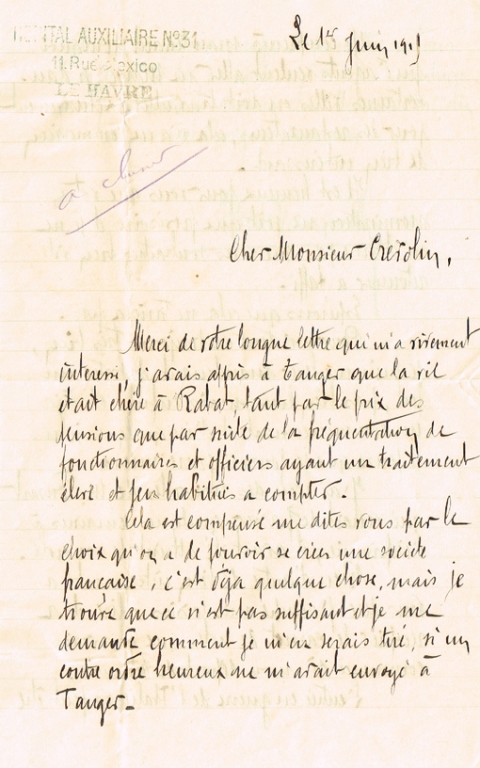 HÔPITAL AUXILIAIRE No 31
11 Rue Mexico
LE HAVRE
Le 1er Juin 191
à classer
Cher Monsieur
Merci de votre longue lettre qui m'a vivement
interessé, j'avais appris à Tanger que la vie
était chère à Rabat, tant par le prix des
pensions que par suite de la fréquentation de
fonctionnaires et officiers ayant un traitement
élevé et peu habitués a compter.
Cela est compensé me dites vous par le
choix qu'on a de pouvoir se créer une société
française, c'est déja quelque chose, mais je
trouve que ce n'est pas suffisant et je me
demande comment je m'en serais tiré, si un
contre ordre heureux ne m'avait envoyé à
Tanger.